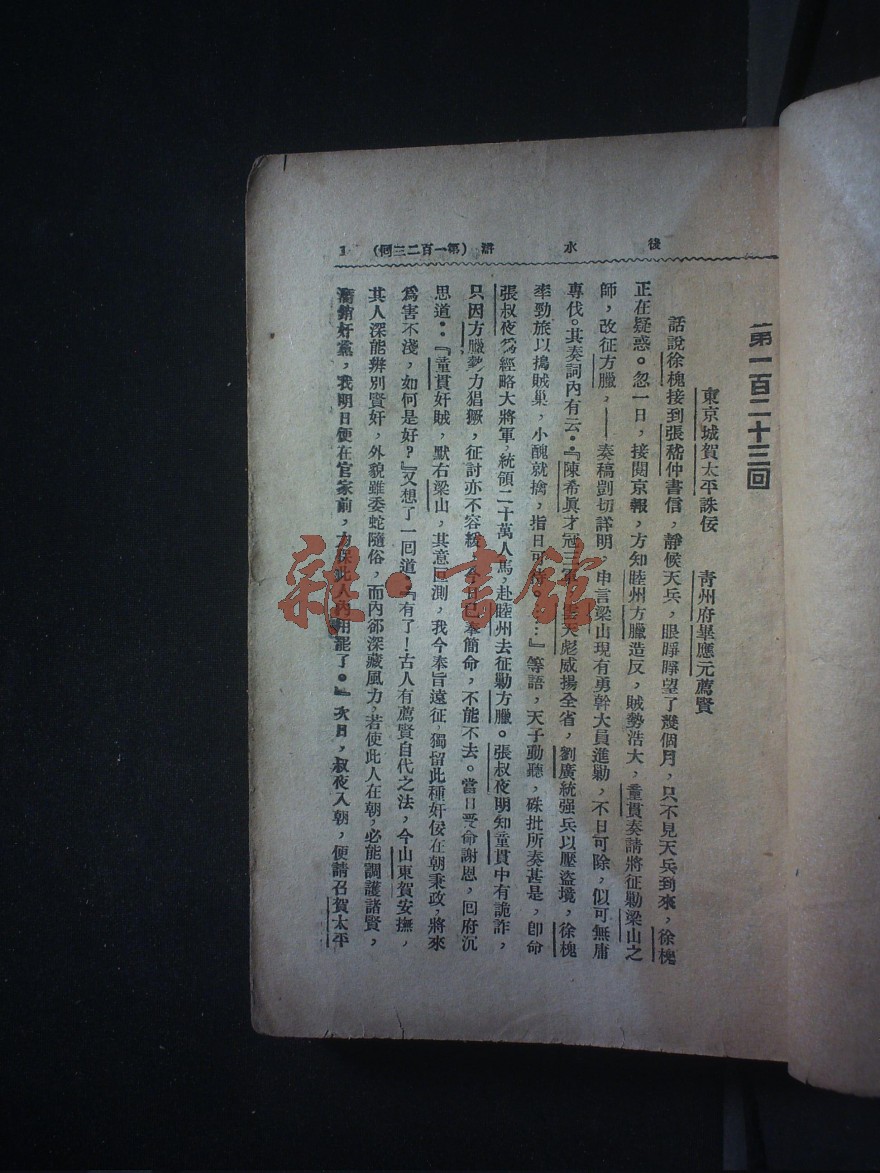 後水滸 (第一百二三回) 1
第一百二十三回
東京城賀太平誅佞 青州府畢應元薦賢
話說徐槐接到張嵇仲書信，靜候天兵，眼睜睜望了幾個月，只不見天兵到來，徐槐
正在疑惑。忽一日，接閱京報，方知睦州方臘造反，賊勢浩大，童貫奏請將征勦梁山之
師，改征方臘，——奏稿剴切詳明，申言梁山現有勇幹大員進勦，不日可除，似可無庸
專伐。其奏詞內有云：『陳希眞才冠三軍，雲天彪威揚全省，劉廣統强兵以壓盜境，徐槐
率勁旅以搗賊巢，小醜就擒，指日可待。…』等語，天子動聽，硃批所奏甚是，卽命
張叔夜爲經略大將軍，統領二十萬人馬，赴睦州去征勦方臘。張叔夜明知童貫中有詭詐，
只因方臘勢力猖獗，征討亦不容緩，今日已奉簡命，不能不去。當日受命謝恩，回府沉
思道：『童貫奸賊，默右梁山，其意叵測，我今奉旨遠征，獨留此種奸佞在朝秉政，將來
爲害不淺，如何是好？』又想了一回道：『有了！古人有薦賢自代之法，今山東賀安撫，
其人深能辨別賢奸，外貌雖委蛇隨俗，而內卻深藏風力，若使此人在朝，必能調護諸賢，
潛銷奸黨，我明日便在官家前，力保此人內用罷了。』次日，叔夜入朝，便請召賀太平
雜·書館